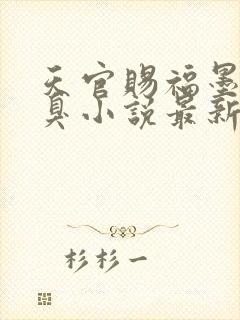 天官賜福墨
臭小説最新
杉杉一